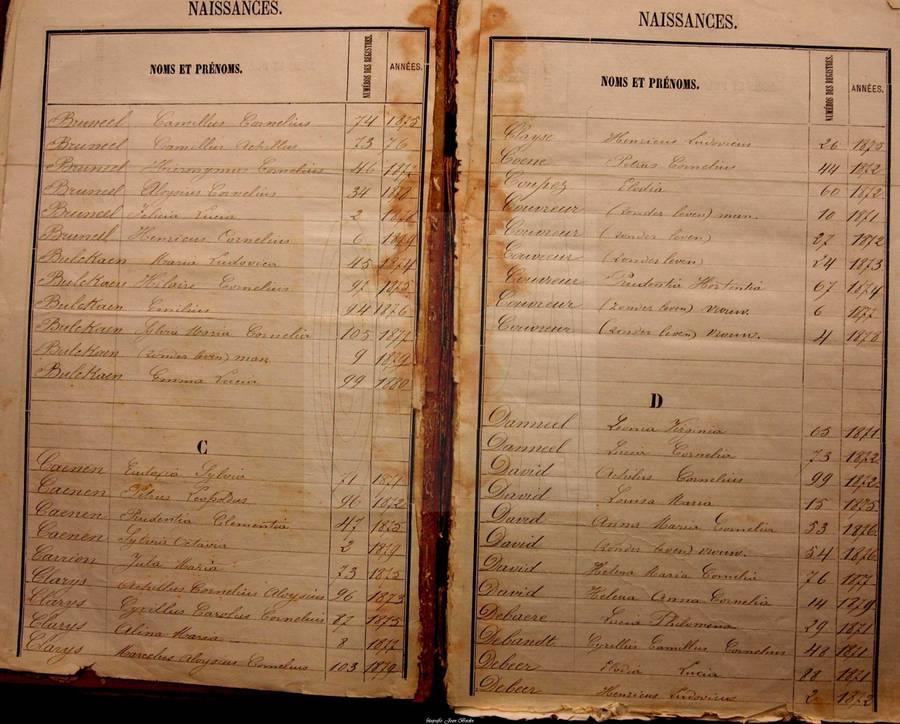 NAISSANCES.
NOMS ET PRÉNOMS. NUMÉROS DES REGISTRES. ANNÉES.
Bruneel Camillus Cornelius 74 1875
Bruneel Camillus Achilles 23 76
Bruneel Hieronymus Cornelius 46 1872
Bruneel Aloysius Cornelius 34
Bruneel Felicia Lucia 2
Bruneel Henricus Cornelius 6 1879
Bulckaen Maria Ludovica 45 1874
Bulckaen Hilaire Cornelius 97 1875
Bulckaen Emilius 94 1876
Bulckaen Maria Cornelia 105 1877
Bulckaen (zonder leven) man 9 1879
Bulckaen Emma Lucia 99 1880
C
Caenen Eulogia Sylvia 71 1871
Caenen Petrus Leopoldus 96 1872
Caenen Prudentia Clementia 47 1875
Caenen Sylvia Octavia 2 1879
Carrion Julia Maria 73 1875
Clarys Achilles Cornelius Aloysius 96 1873
Clarys Cyrillus Carolus Cornelius 87 1875
Clarys Alina Maria 8 1877
Clarys Marcelus Aloysius Cornelius 103 1879
NAISSANCES.
NOMS ET PRÉNOMS. NUMÉROS DES REGISTRES. ANNÉES.
Clayse Henricus Ludovicus 26
Coene Petrus Cornelius 44 1872
Coupez Elodia 60 1872
Couvreur (zonder leven) man. 10 1871
Couvreur (zonder leven) 27 1872
Couvreur (zonder leven) 24 1873
Couvreur Prudentia Hortentia 67 1874
Couvreur (zonder leven) vrouw. 6 1877
Couvreur (zonder leven) vrouw. 4 1878
D
Danneel Leonia Virginia 65 1871
Danneel Lucia Cornelia 73 1872
David Achiles Cornelius 99 1872
David Louisa Maria 15 1875
David Anna Maria Cornelia 53 1876
David (zonder leven) vrouw. 54 1876
David Helena Maria Cornelia 76 1877
David Helena Anna Cornelia 14 1879
Debaere Lucia Philomena 29 1871
Debandt Cyrillus Camillus Cornelius 48 1871
Debeer Elodia Lucia 88 1871
Debeer Henricus Ludovicus 2 1872